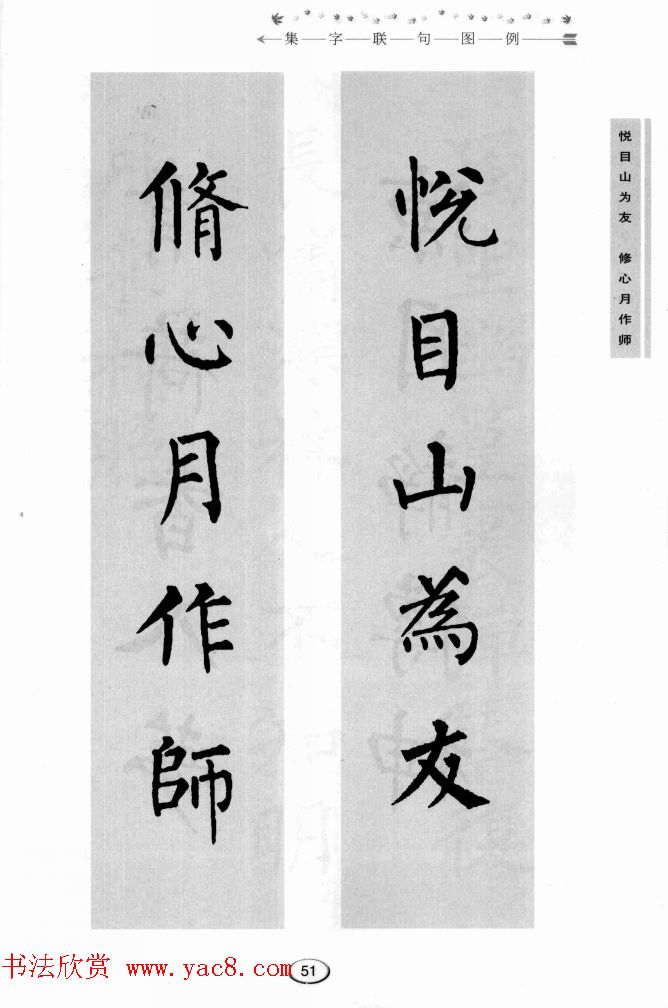 集字联句图例
悦目山為友
脩心月作師
悦目山为友 修心月作师
书法欣赏 www.yac8.com
51